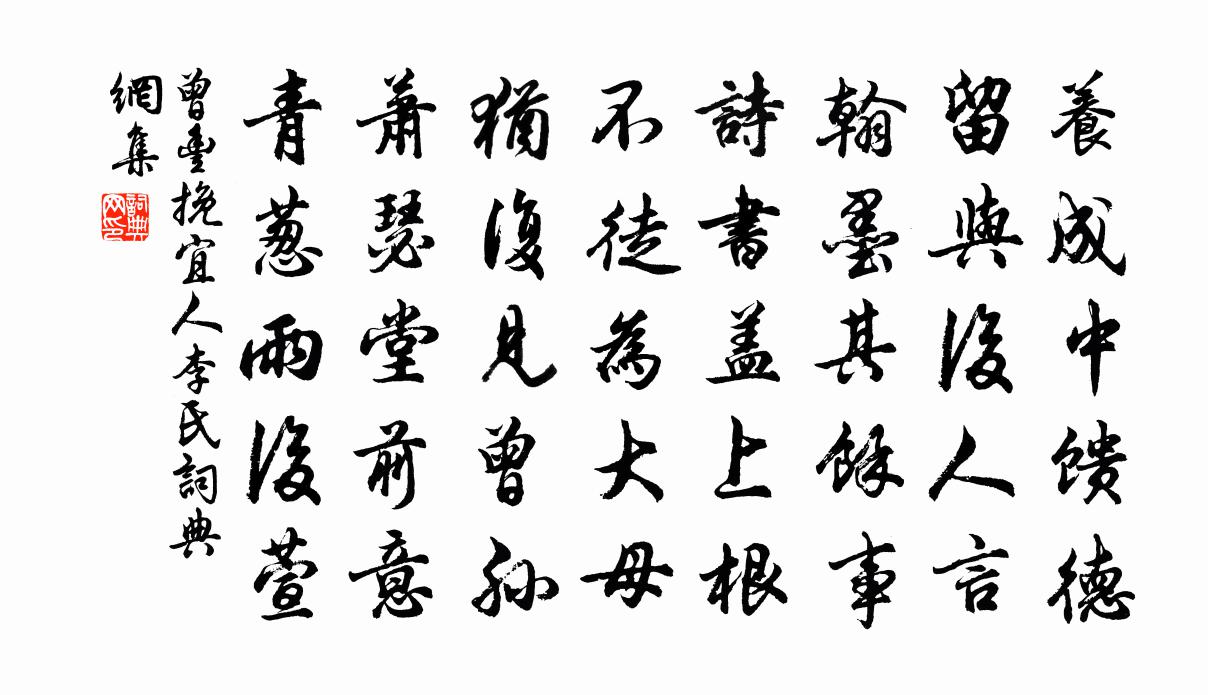 養成中馈德
留與後人言
翰墨其餘事
詩書盖上根
不徒為大母
猶復見曾孙
萧瑟堂前意
青葱雨後萱
曾豊挽宜人李氏詞典
網集
詞典
网印